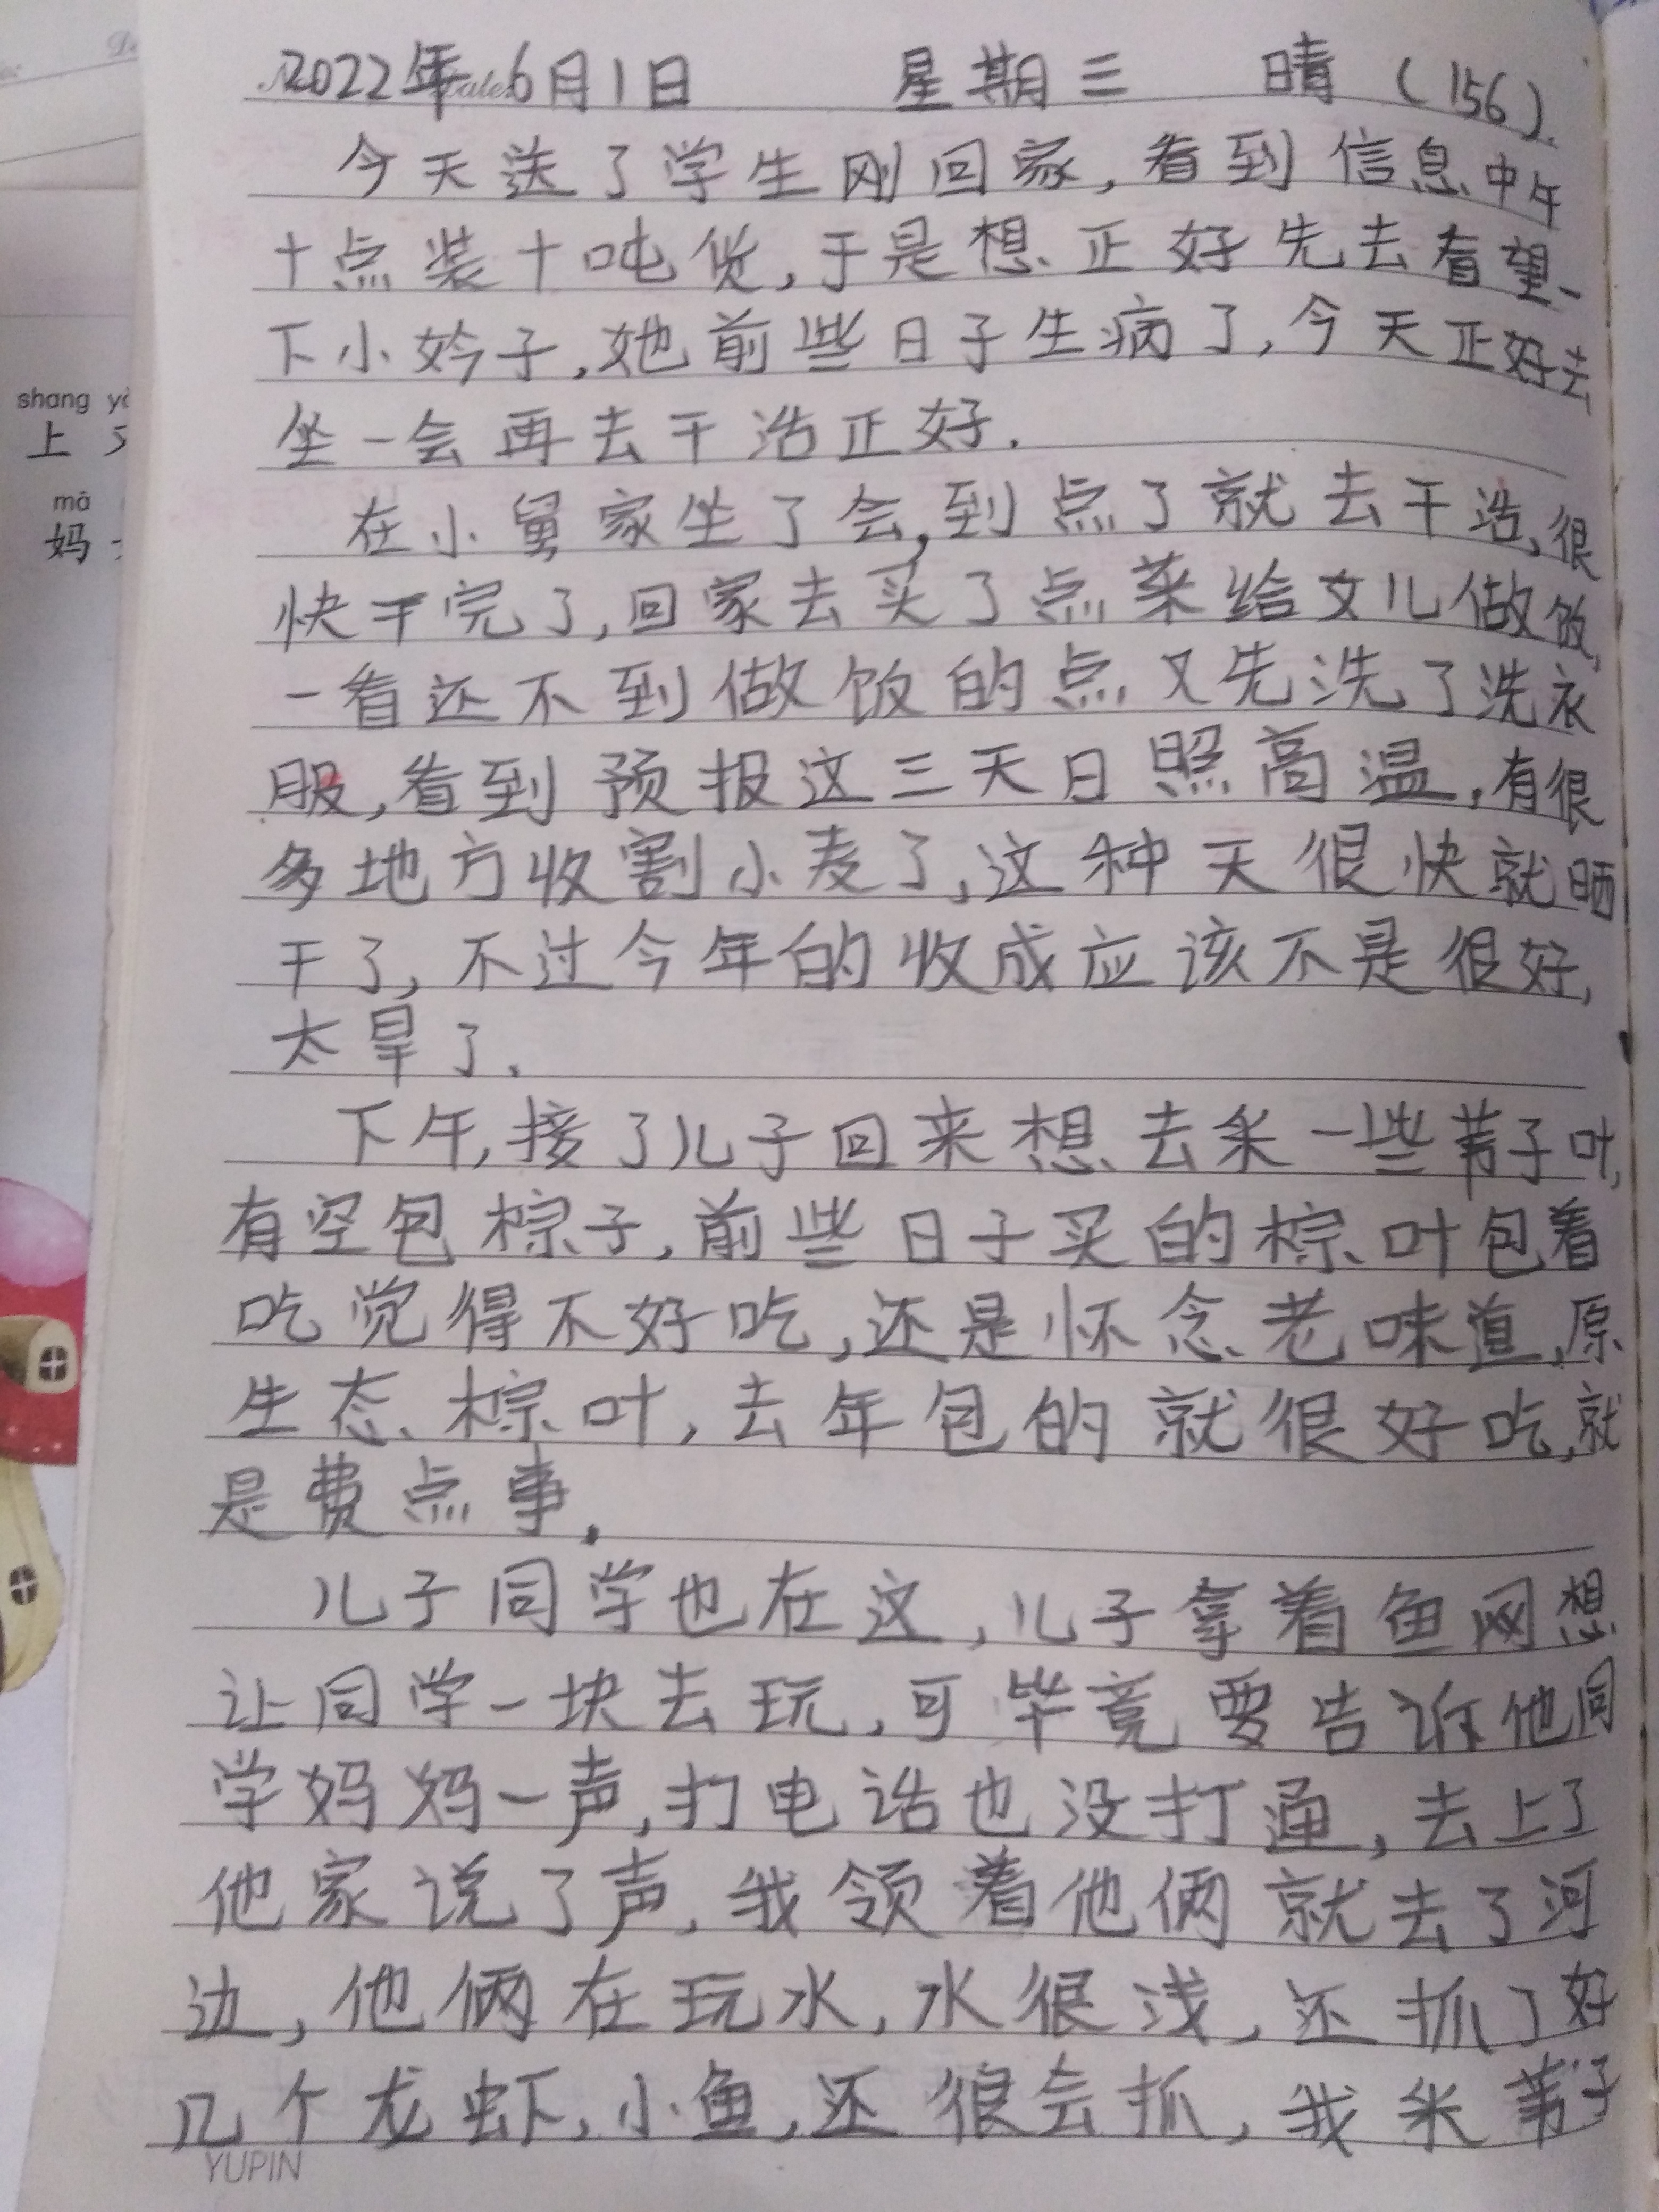 2022年6月1日 星期三 晴 (156).
今天送了学生刚回家,看到信息中午
十点装十吨货,于是想正好先去看望
下小妗子,她前些日子生病了,今天正好去
坐一会再去干活正好.
在小舅家坐了会,到点了就去干活,很
快干完了,回家去买了点菜给女儿做饭,
一看还不到做饭的点又先洗了洗衣
服,看到预报这三天日照高温,有很
多地方收割小麦了,这种天很快就晒
干了,不过今年的收成应该不是很好,
太旱了.
下午,接了儿子回来想去采一些苇子叶,
有空包棕子,前些日子买的棕叶包着
吃觉得不好吃,还是怀念老味道,原
生态棕叶,去年包的就很好吃,就
是费点事.
儿子同学也在这,儿子拿着鱼网想
让同学一块去玩,可毕竟要告诉他同
学妈妈一声,打电话也没打通,去上了
他家说了声,我领着他俩就去了河
边,他俩在玩水,水很浅,还抓了好
几个龙虾,小鱼,还很会抓,我采苇子
YUPIN
shang
上
mā
妈